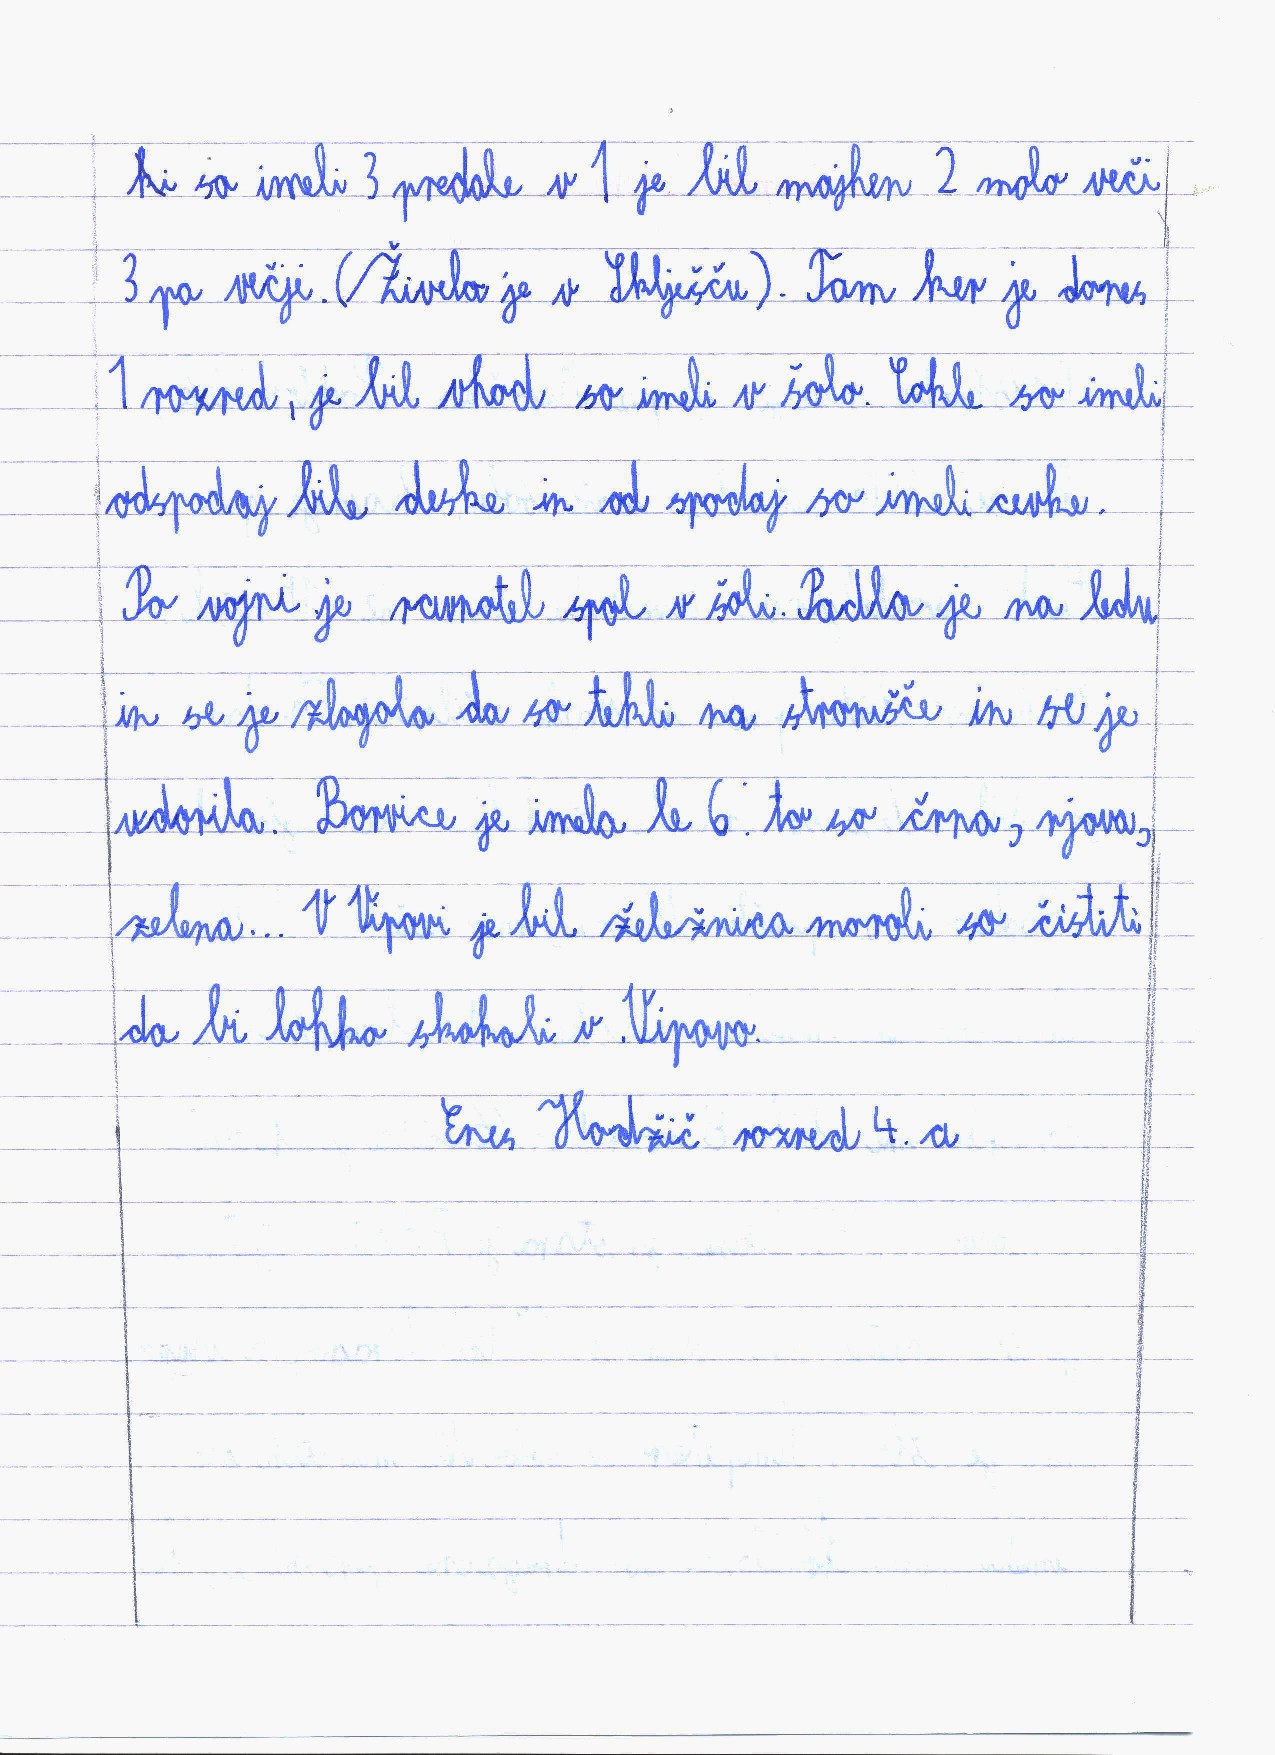 ki so imeli 3 predale v 1 je bil majhen 2 malo veči
3 pa večji. (Živela je v Skljéšču). Tam ker je danes
1 razred, je bil vhod so imeli v šolo. Cokle so imeli
odspodaj bile deske in od spodaj so imeli cevke.
Po vojni je ravnatel spal v šoli. Padla je na ledu
in se je zlagala da so tekli na stranišče in se je
udarila. Barvice je imela le 6: to so črna, rjava,
zelena... V Vipavi je bil želežnica morali so čistiti
da bi lahko skakali v Vipavo.
Enes Hadžič razred 4. a